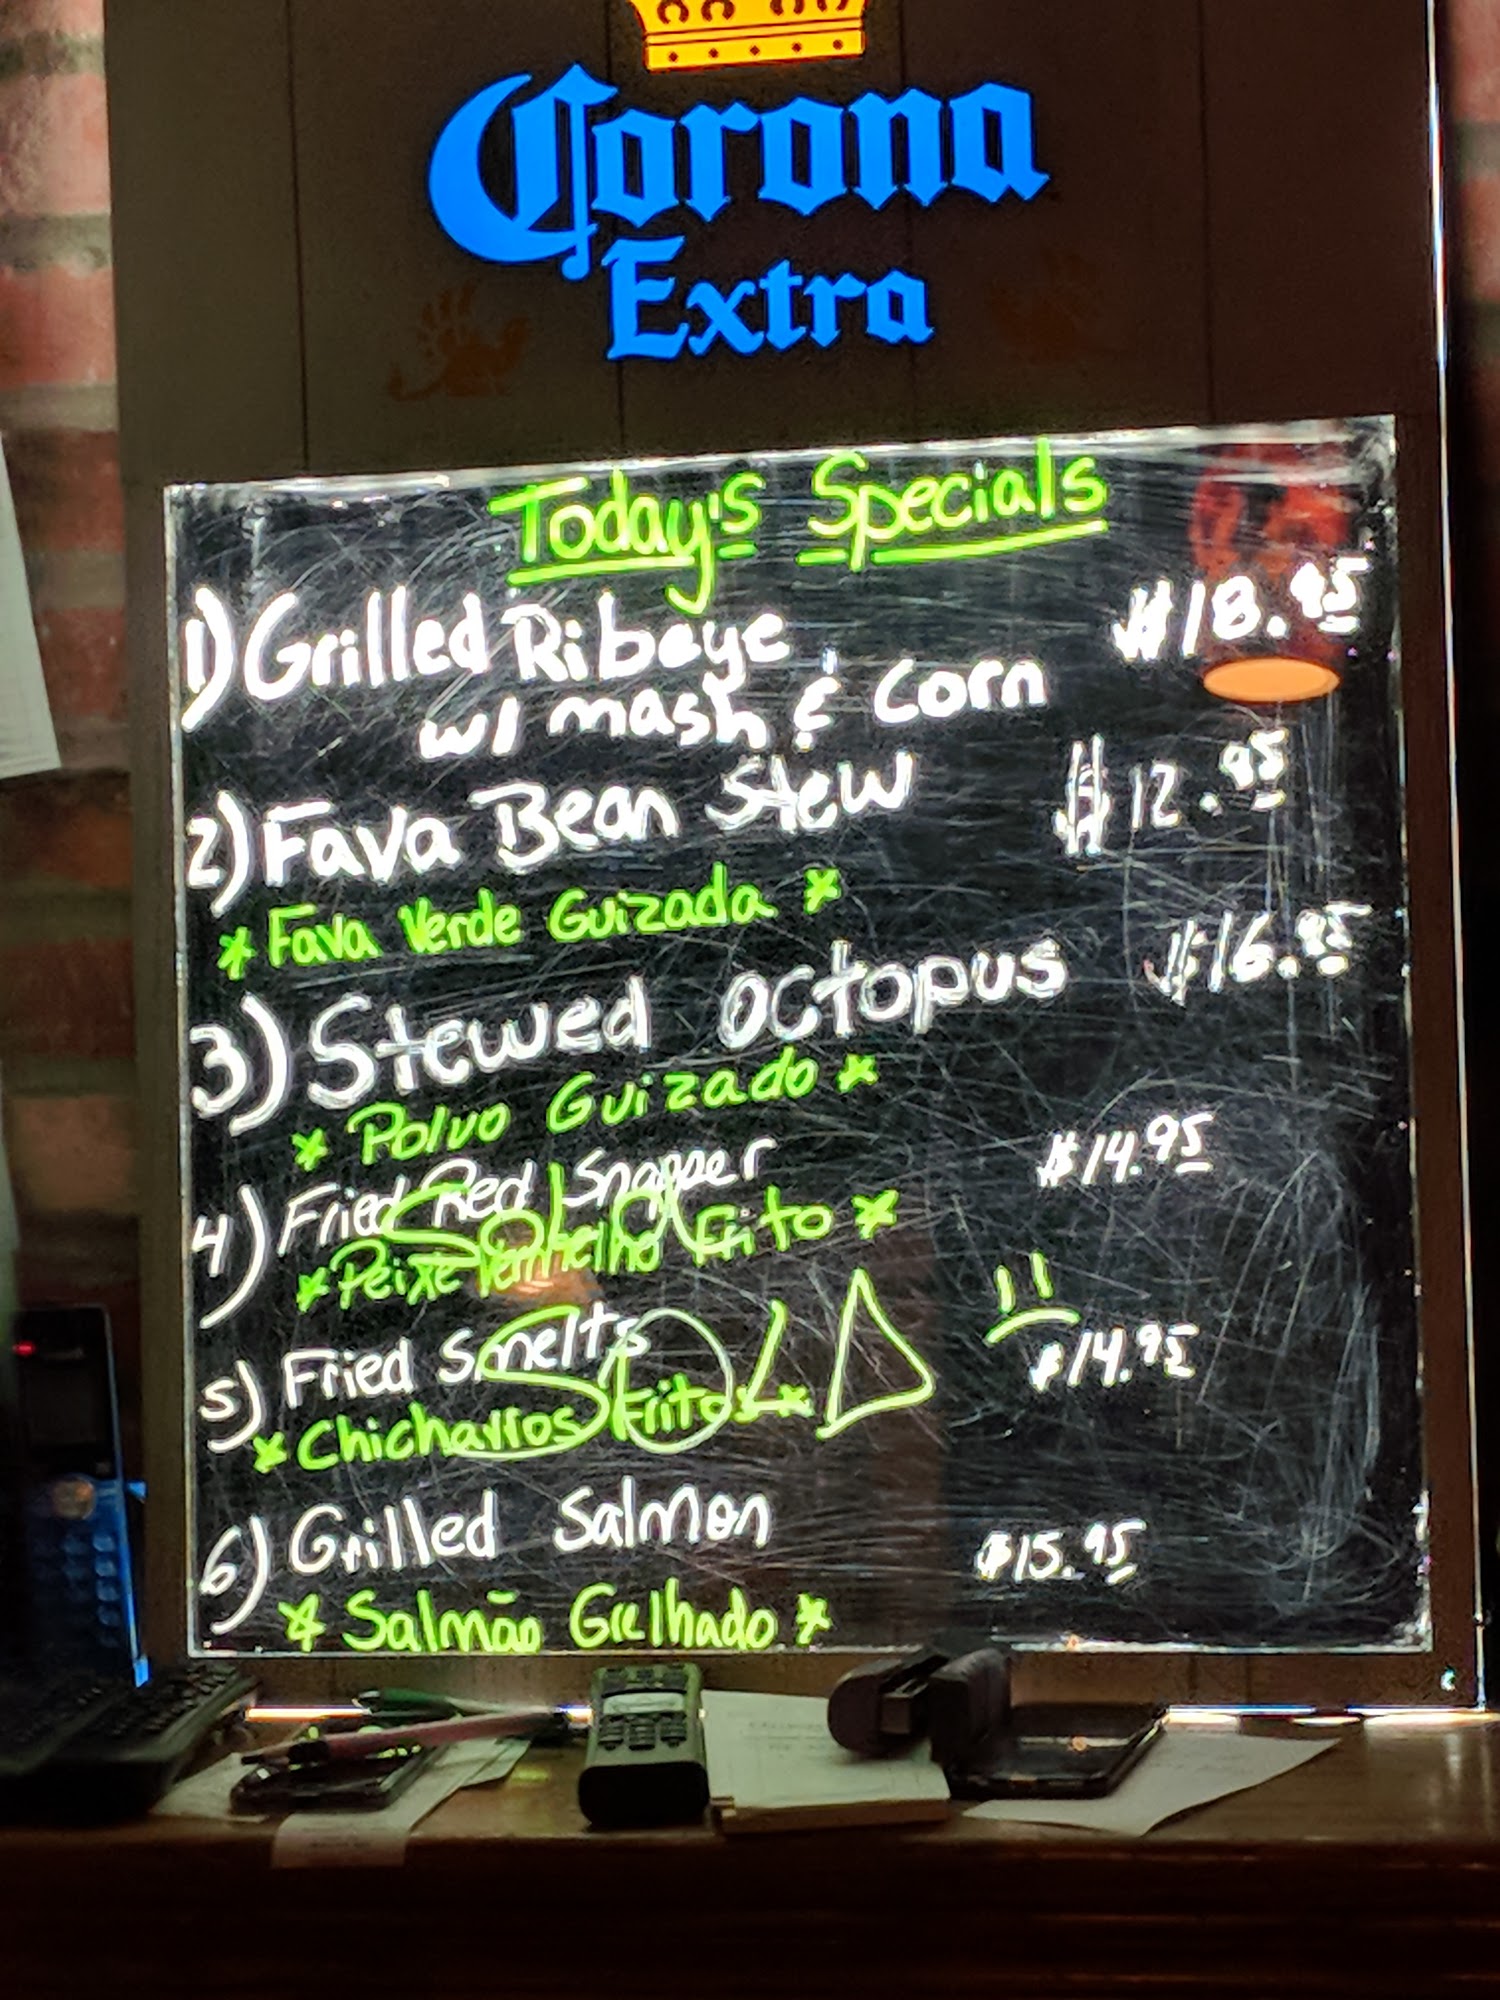 Corona
Extra
Today's Specials
1) Grilled Ribeye $18.95
w/ mash & Corn
2) Fava Bean Stew $12.95
* Fava Verde Guizada *
3) Stewed Octopus $16.95
* Polvo Guizado *
4) Fried Red Snapper $14.95
Sold
* Peixe Vermelho Frito *
5) Fried Smelts $14.95
SOLD
* Chicharros Fritos *
6) Grilled Salmon $15.95
* Salmão Grelhado *